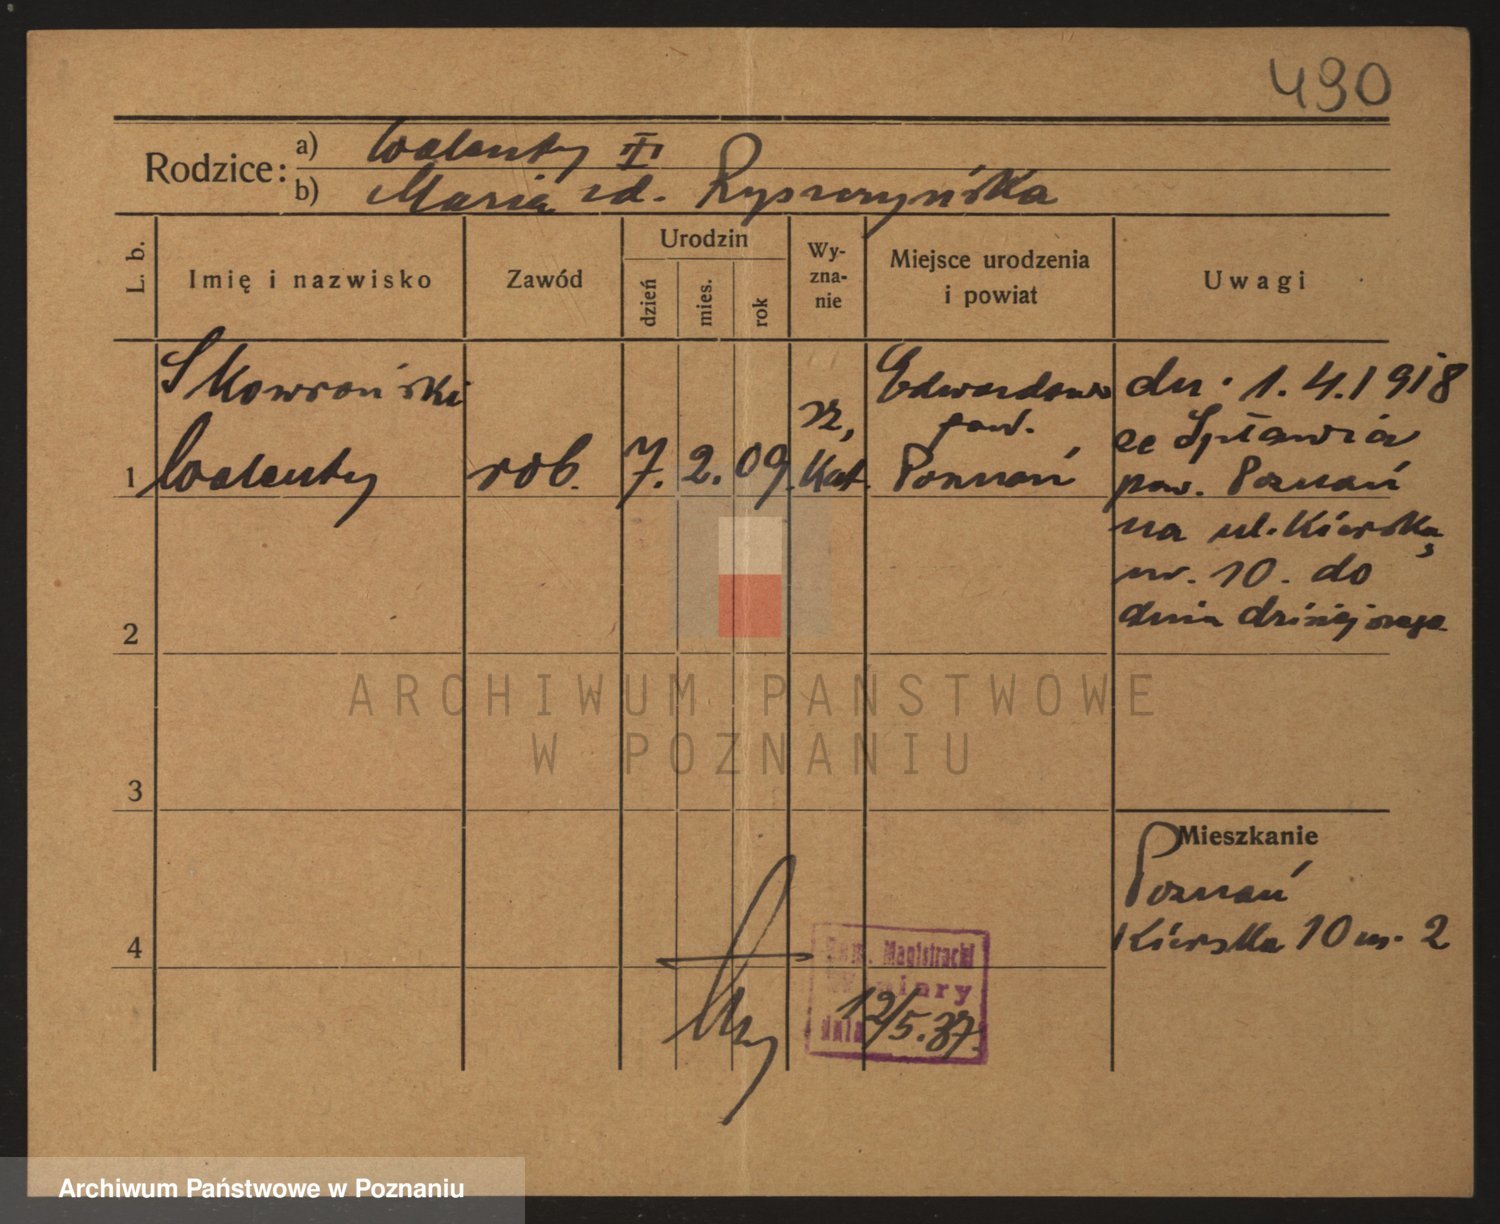 490
Rodzice: a) Walenty
b) Maria zd. Ryszczyńska
L. b.
Imię i nazwisko
Zawód
Urodzin
dzień
mies.
rok
Wy-
zna-
nie
Miejsce urodzenia
i powiat
Uwagi
Skowroński
1 Walenty rob. 7. 2. 09. rz, Kat. Edwardowo
pow.
Poznań
dn. 1.4.1918
ze Spławia
pow. Poznań
na ul. Kierską
nr. 10. do
dnia dzisiejszego
2
3
Mieszkanie
Poznań
Kierska 10 m. 2
4
Kom. Magistracki
Winiary
dnia 12/5.37.
ARCHIWUM PAŃSTWOWE
W POZNANIU
Archiwum Państwowe w Poznaniu